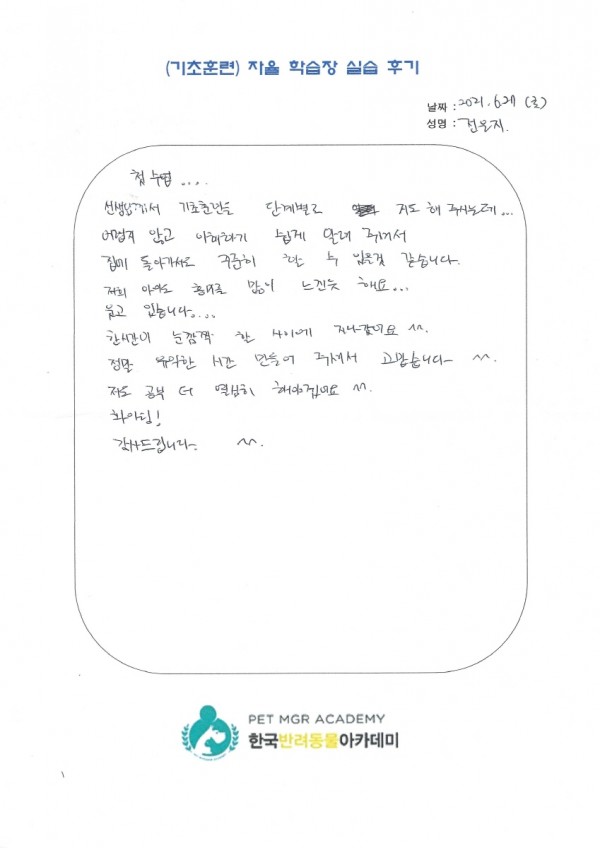 (기초훈련) 자율 학습장 실습 후기
날짜 : 2021. 6.
성명 : 전은지.
첫 수업 ....
선생님께서 기초훈련을 단계별로 지도 해 주시는데 ...
어렵지 않고 이해하기 쉽게 알려 주셔서
집에 돌아가서도 꾸준히 할 수 있을것 같습니다.
저희 아이도 흥미를 많이 느낀듯 해요...
웃고 있습니다....
한시간이 눈깜짝 한 사이에 지나갔네요 ^^.
정말 유익한 시간 만들어 주셔서 고맙습니다~ ^^.
저도 공부 더 열심히 해야겠네요 ^^.
화이팅!
감사드립니다~ ^^.
PET MGR ACADEMY
한국반려동물아카데미